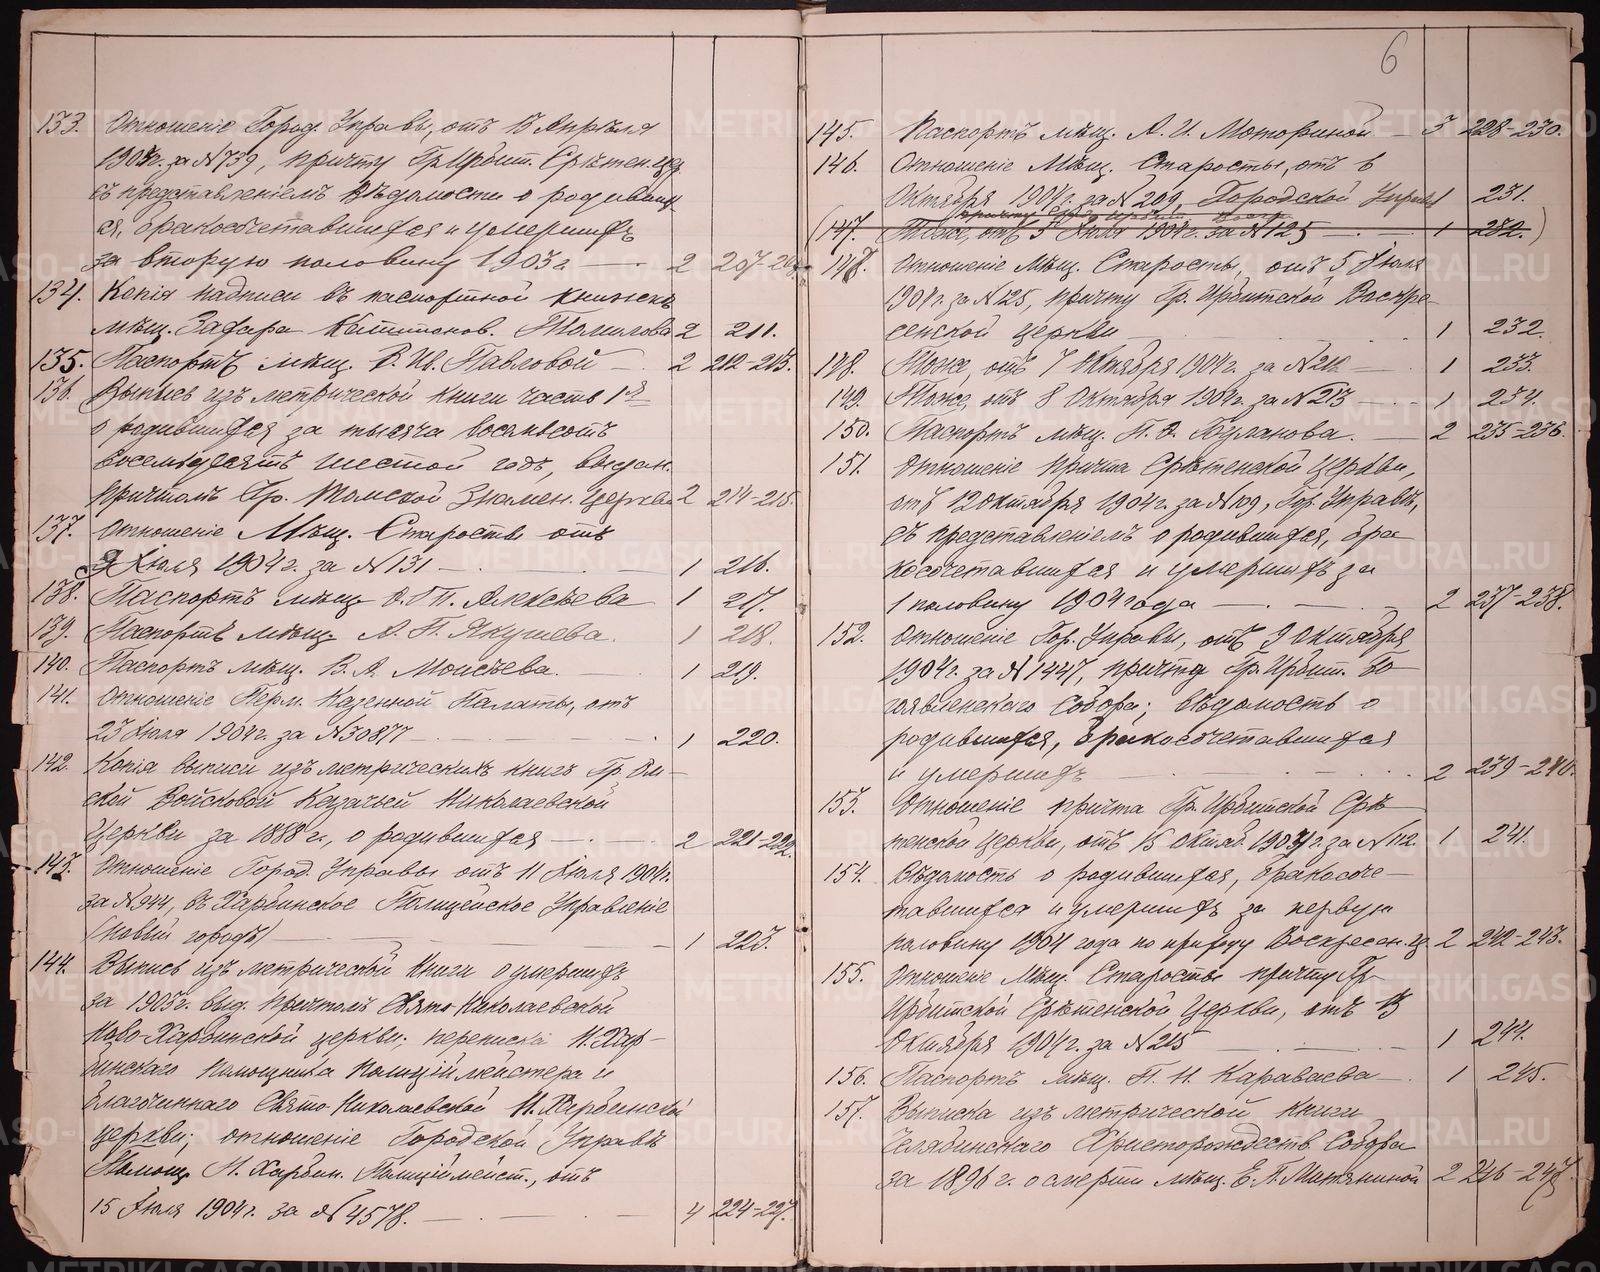 133. Отношеніе Город. Управы, отъ 13 Апрѣля
1904г. за № 739, причту Гр. Ирбит. Срѣтен. цер.
съ представленіемъ вѣдомости о родивших-
ся, бракосочетавшихся и умершихъ
за вторую половину 1903 г. 2 207-210
134. Копія надписи въ паспортной книжкѣ
мѣщ. Капитонов. Томилова 2 211.
135. Паспортъ мѣщ. Ив. Павловой 2 212-213.
136. Выпись изъ метрической книги часть 1я
о родившихся за тысяча восемьсотъ
восемьдесятъ шестой годъ, выдан.
причтомъ Гр. Томской Знамен. церкви 2 214-215.
137. Отношеніе Мѣщ. Старосты отъ
9 Іюля 1904г. за № 131 1 216.
138. Паспортъ мѣщ. Алексѣева 1 217.
139. Паспортъ мѣщ. А. П. Якушева. 1 218.
140. Паспортъ мѣщ. В. А. Моисѣева. 1 219.
141. Отношеніе Перм. Казенной Палаты, отъ
23 Іюля 1904г. за № 30877 1 220.
142. Копія выписи изъ метрическихъ книгъ Гр. Ом-
ской Войсковой Казачьей Николаевской
церкви за 1888 г., о родившихся 2 221-222.
143. Отношеніе Город. Управы отъ 11 Іюля 1904г.
за № 944, въ Харбинское Полицейское Управленіе
(новый городъ) 1 223.
144. Выпись изъ метрической книги о умершихъ
за 1903г. выд. причтомъ Свято-Николаевской
Ново-Харбинской церкви; переписка Н. Хар-
бинскаго помощника полиціймейстера и
благочиннаго Свято-Николаевской Н. Харбинской
церкви; отношеніе Городской Управѣ
Помощ. Н. Харбин. Полиціймейст., отъ
15 Іюля 1904г. за № 4578. 4 224-227.
6
145. Паспортъ мѣщ. А. И. Моториной 3 228-230.
146. Отношеніе Мѣщ. Старосты, отъ 6
Октября 1904г. за № 209, Городской Управѣ 1 231.
(147. Тоже, отъ 5 Іюля 1904г. за № 125 1 232.)
147. Отношеніе Мѣщ. Старосты, отъ 5 Іюля
1904г. за № 125, причту Гр. Ирбитской Воскре-
сенской церкви 1 232.
148. Тоже, отъ 7 Октября 1904г. за № 212 1 233.
149. Тоже, отъ 8 Октября 1904г. за № 213 1 234.
150. Паспортъ мѣщ. Буланова. 2 235-236.
151. Отношеніе причта Срѣтенской церкви,
отъ 12 Октября 1904г. за № 109, Гор. Управѣ,
съ представленіемъ о родившихся, бра-
косочетавшихся и умершихъ за
1 половину 1904 года 2 237-238.
152. Отношеніе Гор. Управы, отъ 9 Октября
1904г. за № 1447, причту Гр. Ирбит. Бо-
гоявленскаго Собора; вѣдомость о
родившихся, бракосочетавшихся
и умершихъ 2 239-240.
153. Отношеніе причта Гр. Ирбитской Срѣ-
тенской церкви, отъ 15 Октяб. 1904г. за № 112. 1 241.
154. Вѣдомость о родившихся, бракосоче-
тавшихся и умершихъ за первую
половину 1904 года по приходу Воскресен. ц. 2 242-243.
155. Отношеніе Мѣщ. Старосты причту Гр.
Ирбитской Срѣтенской церкви, отъ 13
Октября 1904г. за № 215 1 244.
156. Паспортъ мѣщ. П. Н. Караваева 1 245.
157. Выписка изъ метрической книги
Челябинскаго Христорождеств. Собора
за 1896 г. о смерти мѣщ. Е. П. Митяниной 2 246-247.
METRIKI.GASO-URAL.RU